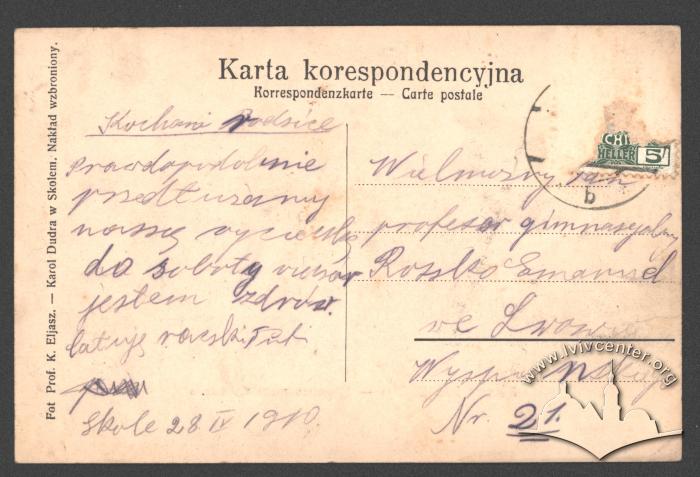 Karta korespondencyjna
Korrespondenzkarte — Carte postale
Fot Prof. K. Eljasz. — Karol Dudra w Skolem. Nakład wzbroniony.
Kochani Rodzice
prawdopodobnie
przedłużamy
naszą wycieczkę
do soboty
jestem zdrów.
całuję rączki
Skole 28 IV 1910.
CHI
HELLER 5
b
Wielmożny Pan
profesor gimnazyalny
Roszko Emanuel
we Lwowie
Wyspiańskiego
Nr. 21.
www.lvivcenter.org